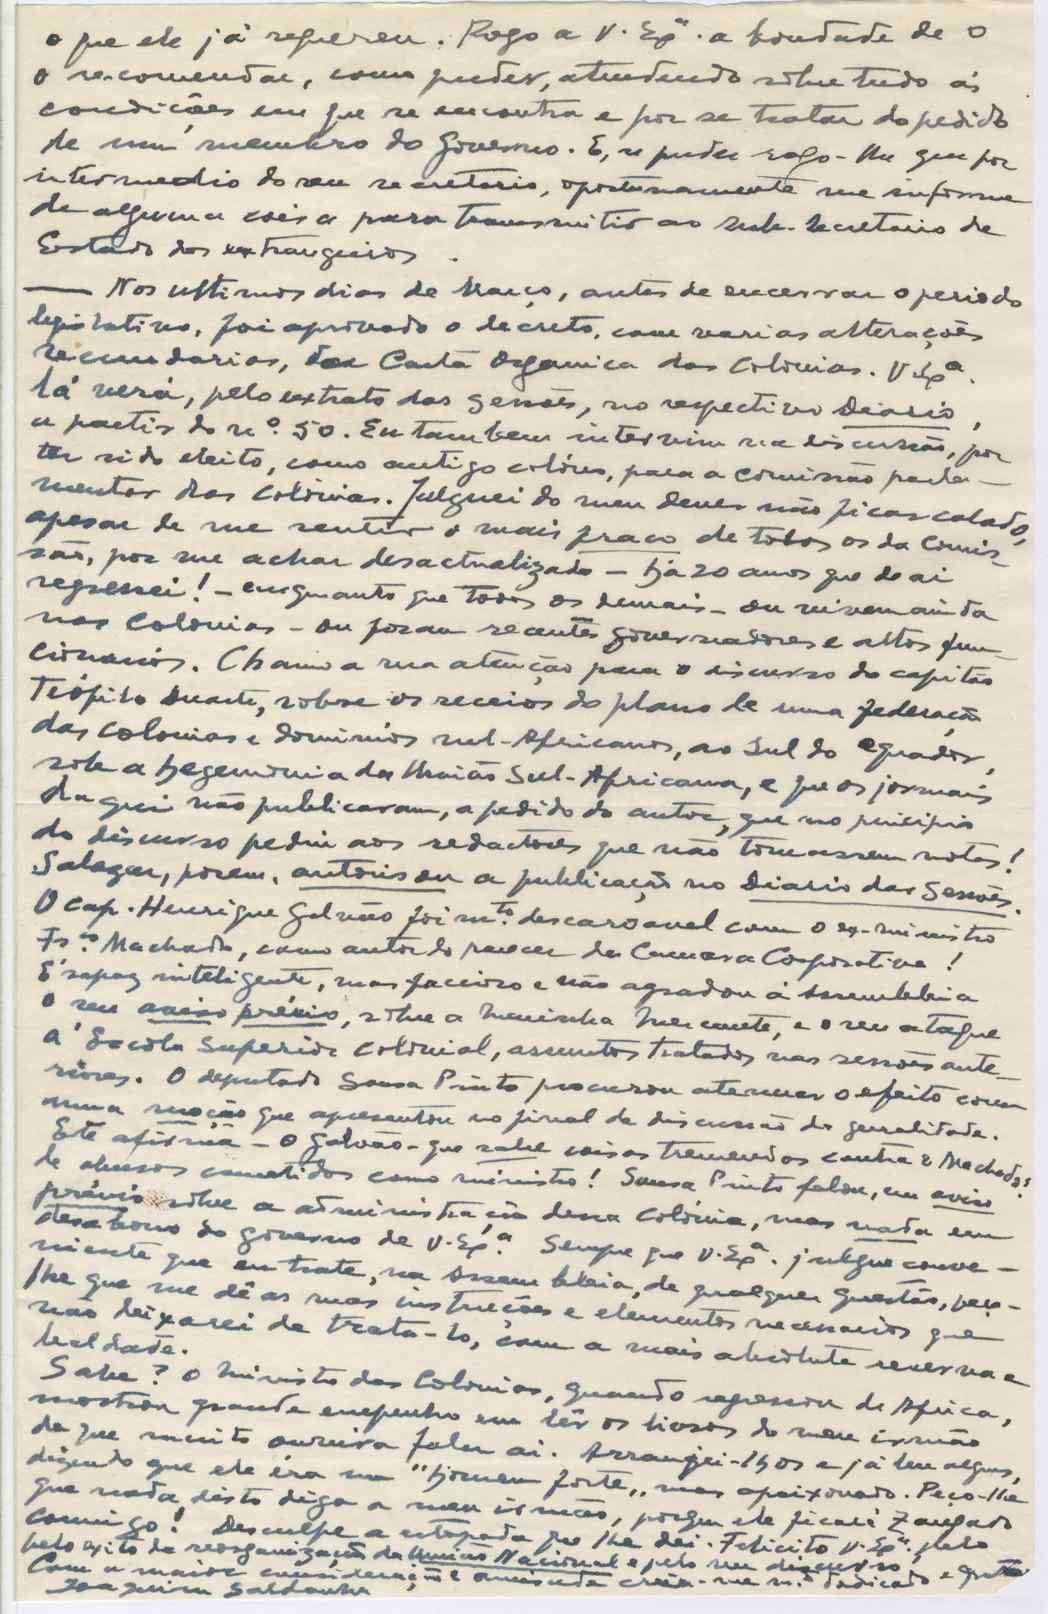 o que ele já requereu. Rogo a V. Exª. a bondade de o
o recomendar, como puder, atendendo sôbre tudo ás
condições em que se encontra e por se tratar do pedido
de um membro do Governo. E, se puder rogo-lhe que por
intermedio do seu secretario, oportunamente me informe
de alguma coisa para transmitir ao sub-secretario de
Estado dos extrangeiros.
— Nos ultimos dias de Março, antes de encerrar o periodo
legislativo, foi aprovado o decreto, com varias alterações
secundarias, da Carta Organica das Colonias. V. Exª.
lá verá, pelo extrato das sessões, no respectivo Diario,
a partir do nº. 50. Eu tambem intervim na discussão, por
ter sido eleito, como antigo colóno, para a comissão parla-
mentar das colónias. Julguei do meu dever não ficar calado,
apesar de me sentir o mais fraco de todos os da comis-
são, por me achar desactualizado — há 20 anos que de ai
regressei! — enquanto que todos os demais — ou vivem ainda
nas Colonias — ou foram recentes governadores e altos fun-
cionarios. Chamo a sua atenção para o discurso do capitão
Teófilo Duarte, sobre os receios do plano de uma federação
das colonias e dominios sul-Africanos, ao Sul do equador,
sob a hegemonia da União Sul-Africana, e que os jornais
daqui não publicaram, a pedido do autor, que no principio
do discurso pediu aos redactores que não tomassem notas!
Salazar, porem, autorisou a publicação no Diario das Sessões.
O cap. Henrique Galvão foi mtº. descaroavel com o ex-ministro
Frº. Machado, como autor do parecer da Camara Corporativa!
É rapaz inteligente, mas faccioso e não agradou á Assembleia
o seu aviso prévio, sôbre a Marinha Mercante, e o seu ataque
á Escola Superior Colonial, assuntos tratados nas sessões ante-
riores. O deputado Sousa Pinto procurou atenuar o efeito com
uma moção que apresentou no final da discussão da generalidade.
Este afirma — o Galvão — que sabe coisas tremendas contra o Machado,
de abusos cometidos como ministro! Sousa Pinto falou, em aviso
prévio sôbre a administração dessa colónia, mas nada em
desabono do governo de V. Exª. Sempre que V. Exª. julgue conve-
niente que eu trate, na Assembleia, de qualquer questão, peço-
lhe que me dê as suas instruções e elementos necessarios que
não deixarei de trata-lo, com a mais absoluta reserva e
lealdade.
Sabe? O Ministro das Colonias, quando regressou de Africa,
mostrou grande empenho em lêr os livros do meu irmão
de que muito ouvira falar ai. Arranjei-lhos e já leu alguns,
dizendo que ele éra um "homem forte", mas apaixonado. Peço-lhe
que nada disto diga a meu irmão, porque ele ficará zangado
comigo! Desculpe a estopada que lhe dei. Felicito V. Exª. pelo
pelo exito da reorganização da União Nacional e pelo seu discurso,
Com a maior consideração e amisade creia-me mtº. dedicado e
Joaquim Saldanha